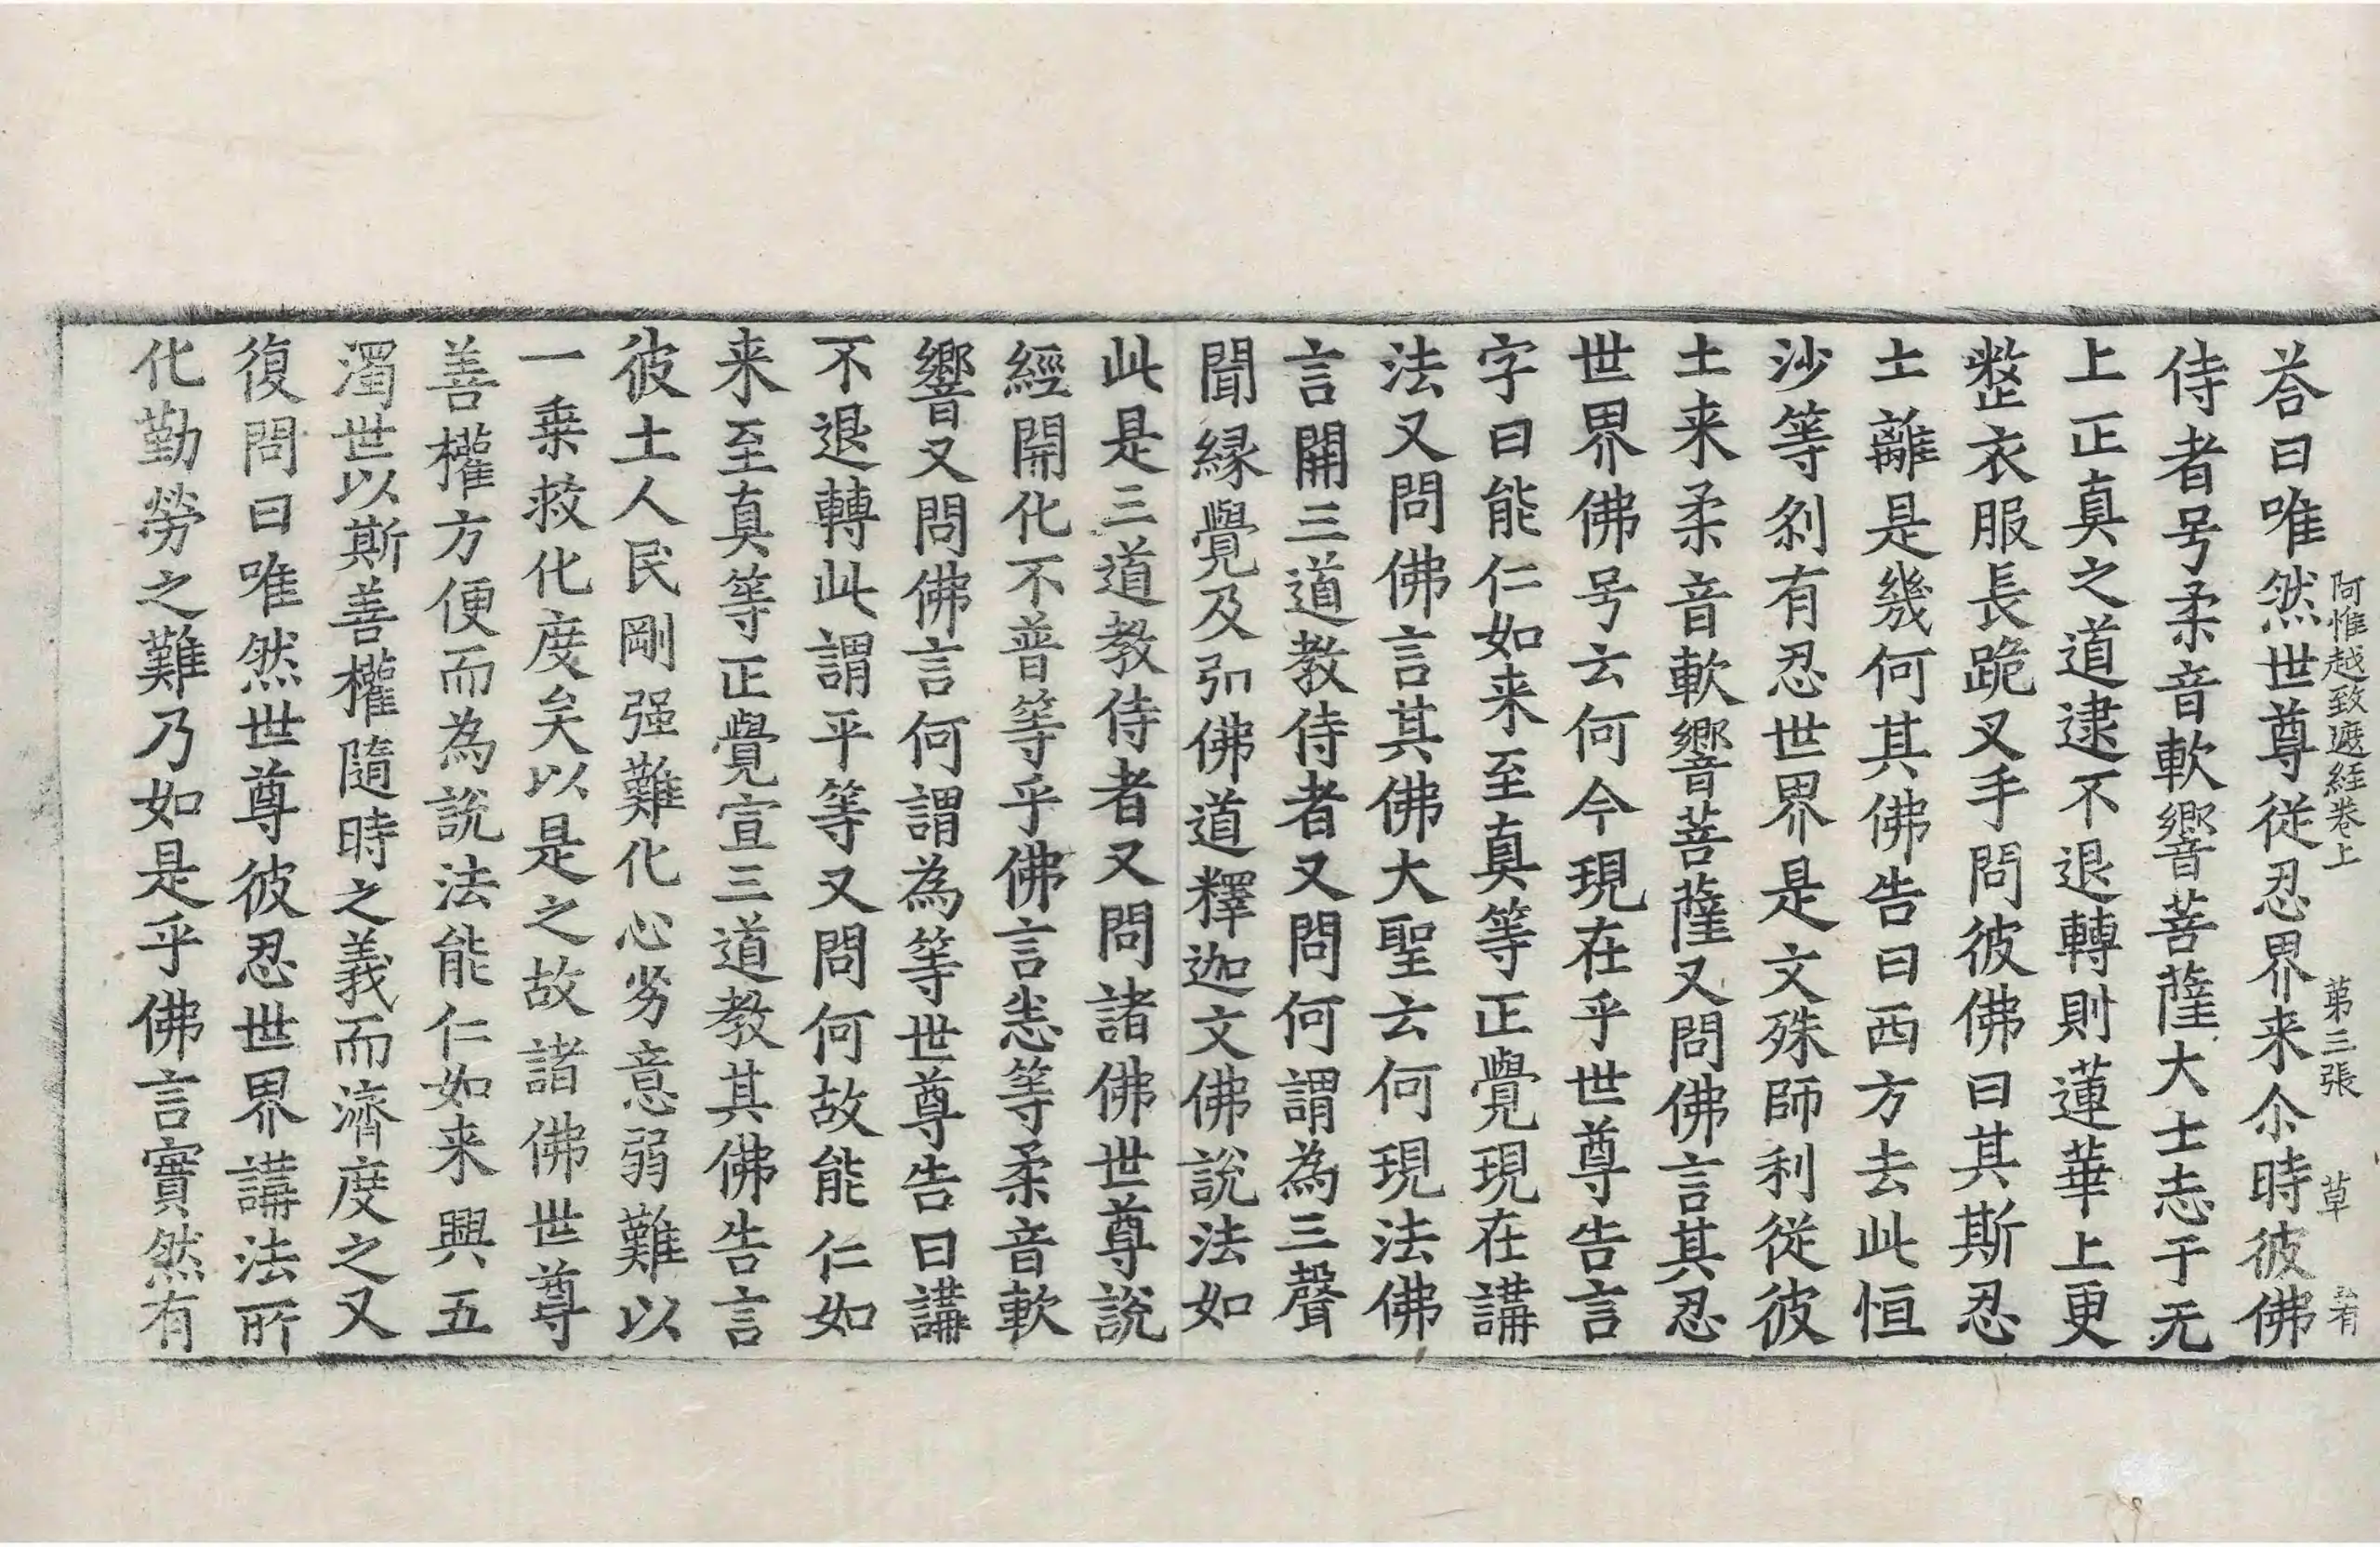 阿惟越致遮経卷上 第三張 草
荅曰唯然世尊従忍界来尒時彼佛
侍者号柔音軟響菩薩大士志于无
上正真之道逮不退轉則蓮華上更
整衣服長跪叉手問彼佛曰其斯忍
土離是幾何其佛告曰西方去此恒
沙等刹有忍世界是文殊師利從彼
土来柔音軟響菩薩又問佛言其忍
世界佛号云何今現在乎世尊告言
字曰能仁如来至真等正覺現在講
法又問佛言其佛大聖云何現法佛
言開三道教侍者又問何謂為三聲
聞縁覺及弘佛道釋迦文佛說法如
此是三道教侍者又問諸佛世尊說
經開化不普等乎佛言恙等柔音軟
響又問佛言何謂為等世尊告曰講
不退轉此謂平等又問何故能仁如
来至真等正覺宣三道教其佛告言
彼土人民剛强難化心劣意弱難以
一乗救化度矣以是之故諸佛世尊
善權方便而為說法能仁如来興五
濁世以斯善權隨時之義而濟度之又
復問曰唯然世尊彼忍世界講法所
化勤勞之難乃如是乎佛言實然有